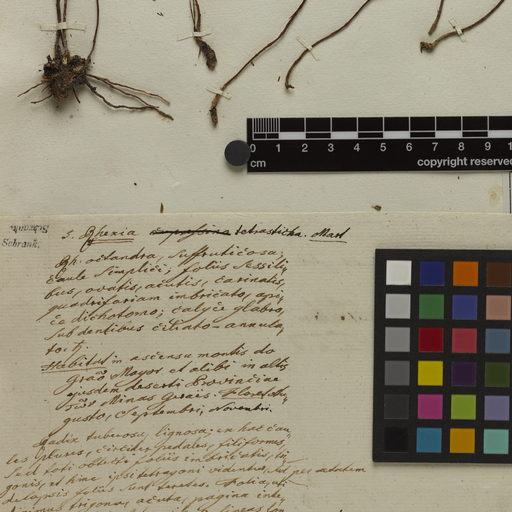 0 1 2 3 4 5 6 7 8 9
cm
copyright reserve
Schrank.
3. Rhexia tetrasticha. Mart
Rh. octandra, suffruticosa,
caule simplici, foliis sessili-
bus, ovatis, acutis, carinatis,
quadrifariam imbricato, api-
ce dichotomo; calyce glabro,
sub dentibus ciliato-annula-
to. ♄
Habitat in ascensu montis do
Grão Mogor et alibi in altis
ejusdem deserti Provinciae
Minas Geraës. Floret Au-
gusto, Septembri, Novembri.
Radix tuberosa, lignosa; ex hac cau-
les plures, circiter pedales, filiformes,
sed toti obtecti foliis imbricatis, te-
gonis, et hinc ipsi tetragoni videntur, sed per aetatem
delapsis foliis sunt teretes. Folia,
trigona, acuta, pagina